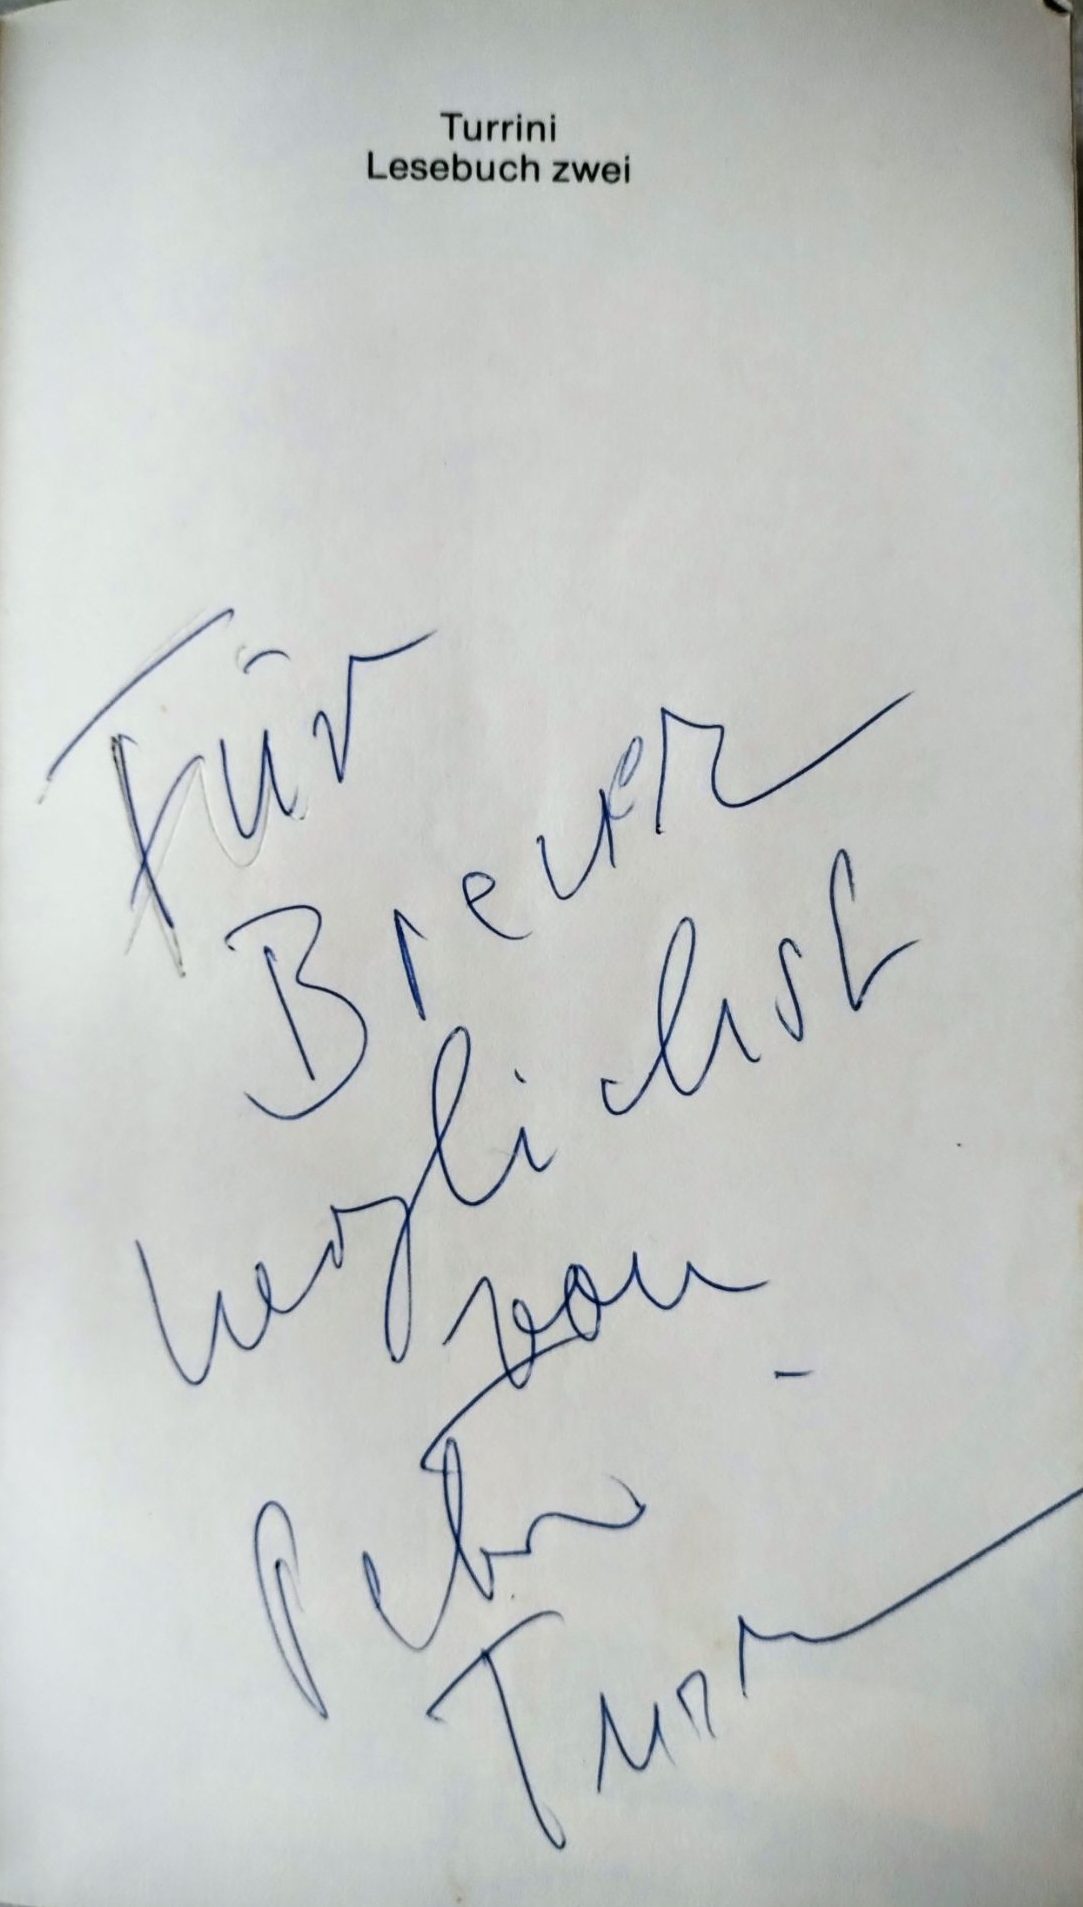 Turrini
Lesebuch zwei
Für
Breuer
herzlichst
von
Peter
Turrini